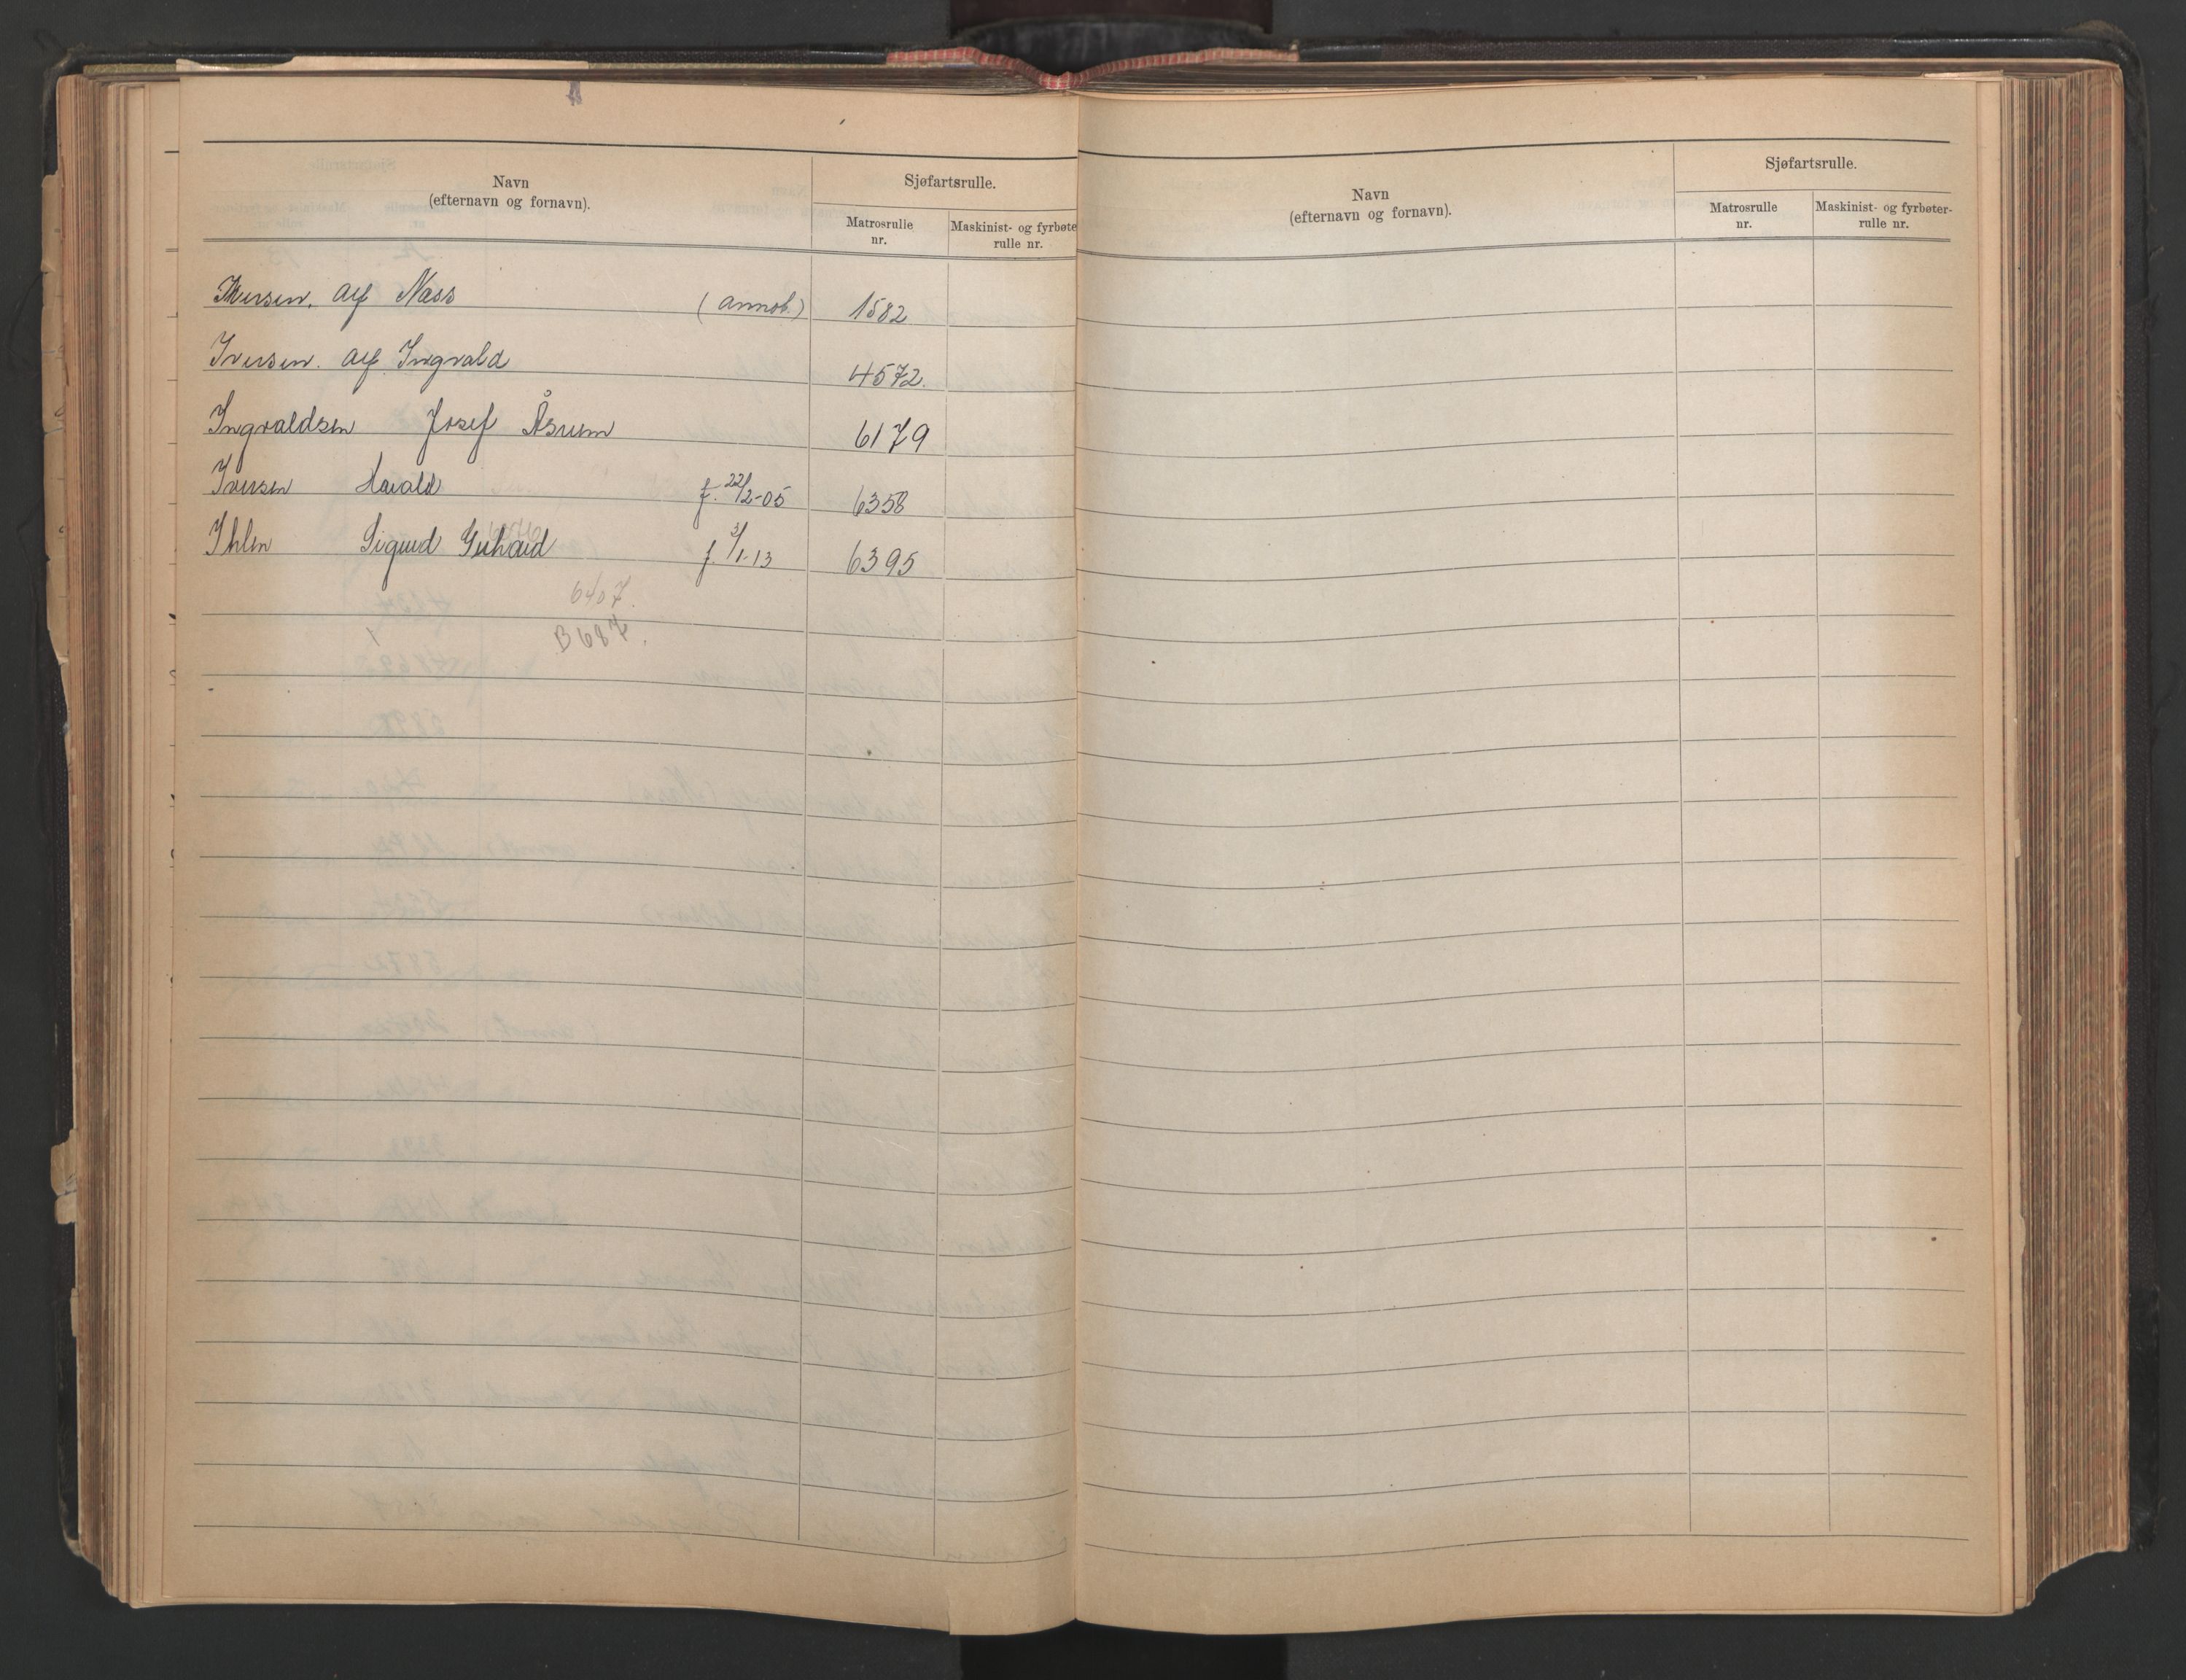 Navn
(efternavn og fornavn).
Sjøfartsrulle.
Matrosrulle
nr.
Maskinist- og fyrbøte
rulle nr.
Iversen. Alf Næss (annot.) 1582
Iversen. Alf Ingvald 4572.
Ingvaldsen Josef Åsrum 6179
Iversen Harald f. 22/2-05 6358
Ihlen Sigurd Gerhard f. 3/1-13 6395
6407.
B 687.
Navn
(efternavn og fornavn).
Sjøfartsrulle.
Matrosrulle
nr.
Maskinist- og fyrbøter-
rulle nr.